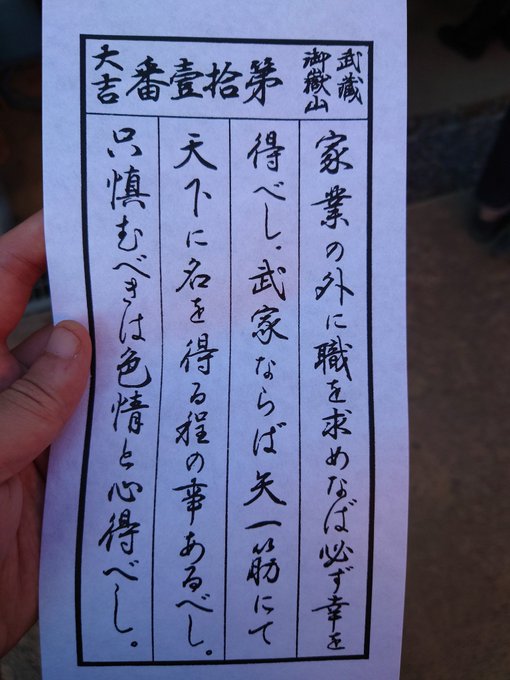 武蔵
御嶽山
第拾壹番
大吉
家業の外に職を求めなば必ず幸を
得べし．武家ならば矢一筋にて
天下に名を得る程の事あるべし．
只慎むべきは色情と心得べし。